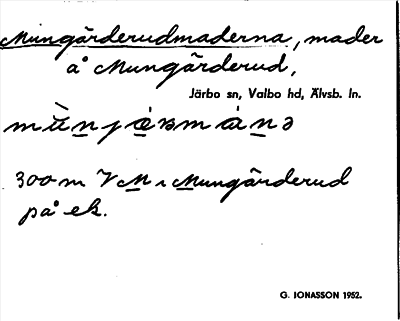 Mungärderudmaderna, mader
å Mungärderud,
Järbo sn, Valbo hd, Älvsb. ln.
300 m V M i Mungärderud
på ek.
G. IONASSON 1952.